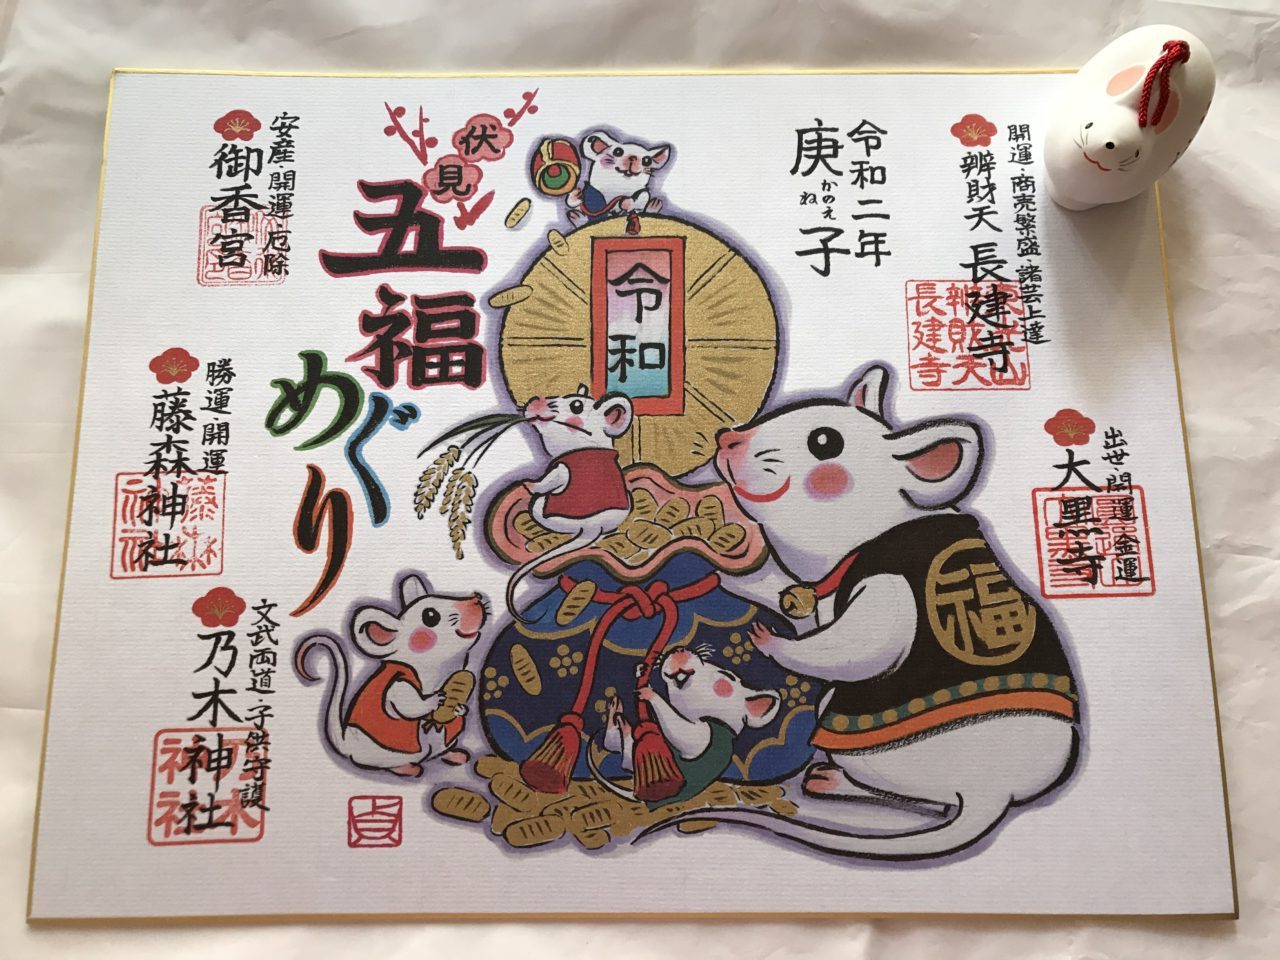 開運・商売繁盛・諸芸上達
辨財天 長建寺
辨財天
長建寺
出世・開運・金運
大黒寺
令和二年
庚子
かのえ
ね
令和
福
伏見
五福
めぐり
安産・開運・厄除
御香宮
勝運・開運
藤森神社
藤森
神社
文武両道・子供守護
乃木神社
乃木
神社
貞